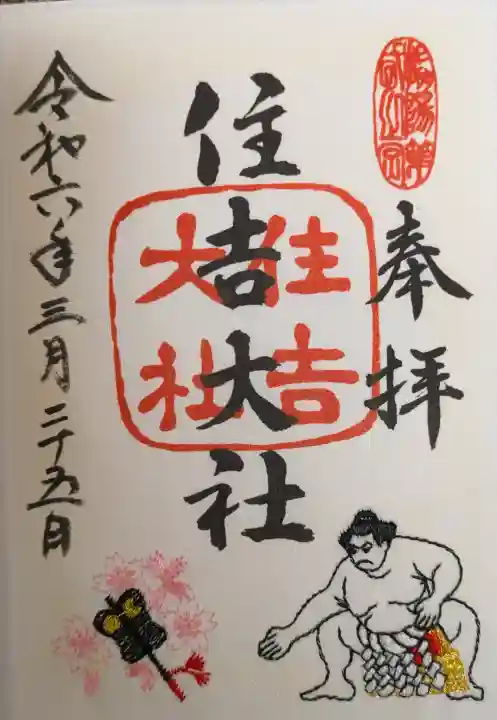 奉拝
住吉大社
住吉
大社
令和六年三月二十五日